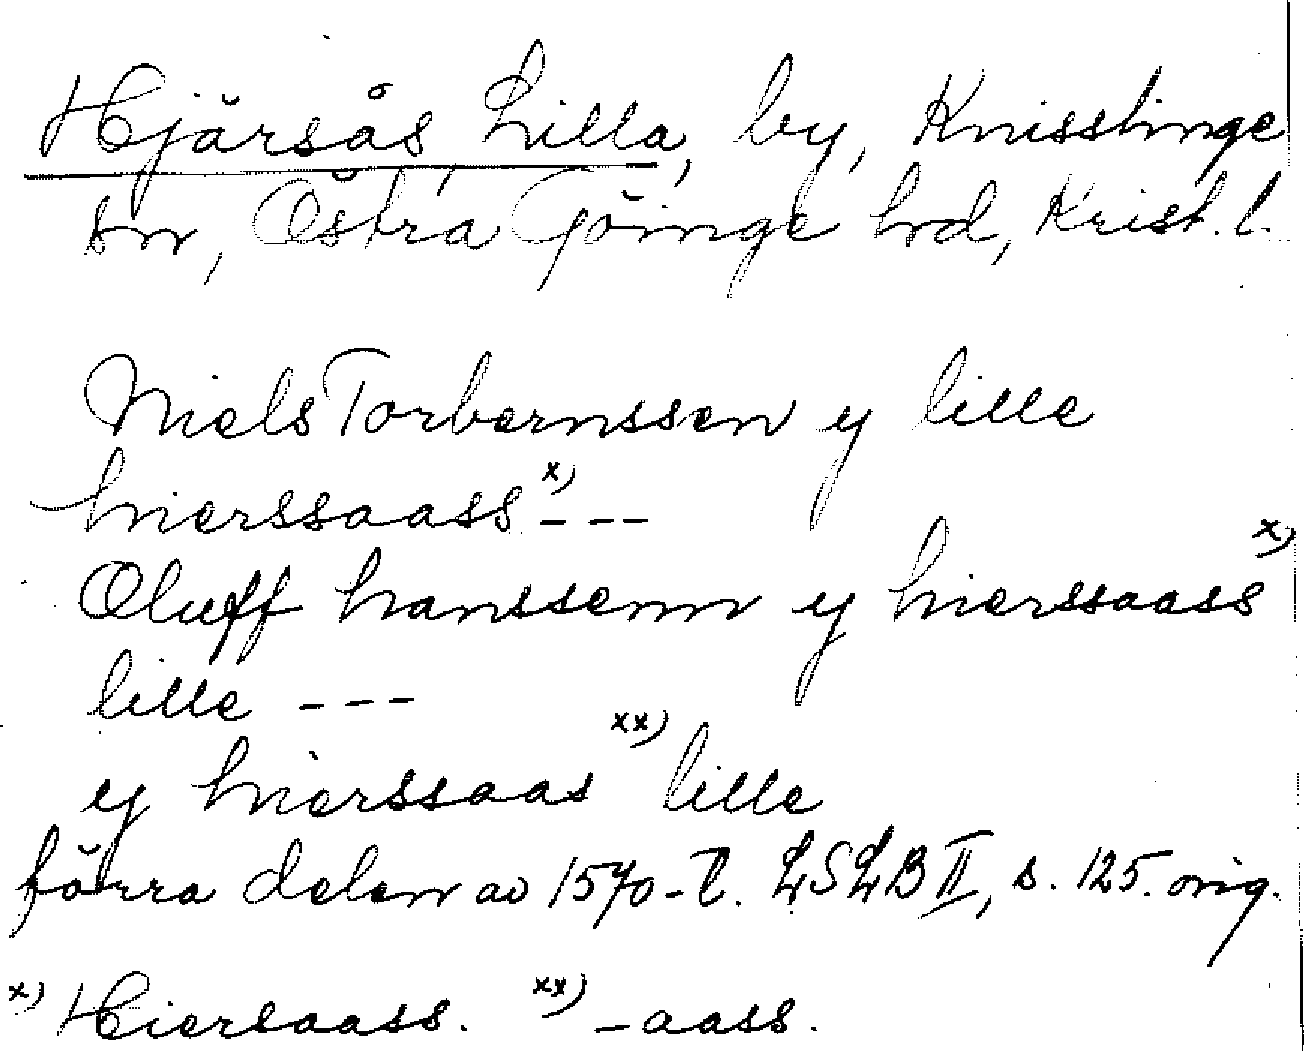 Hjärsås, Lilla, by, Knisslinge
sn, Östra Göinge hd, Krist. l.
Niels Torbernssen y lille
hierssaass x) - - -
Oluff hanssenn y hierssaass x)
lille - - -
y hierssaas xx) lille
förra delen av 1570-t. LSLB II, s. 125. orig.
x) Hiersaass. xx) -aass.